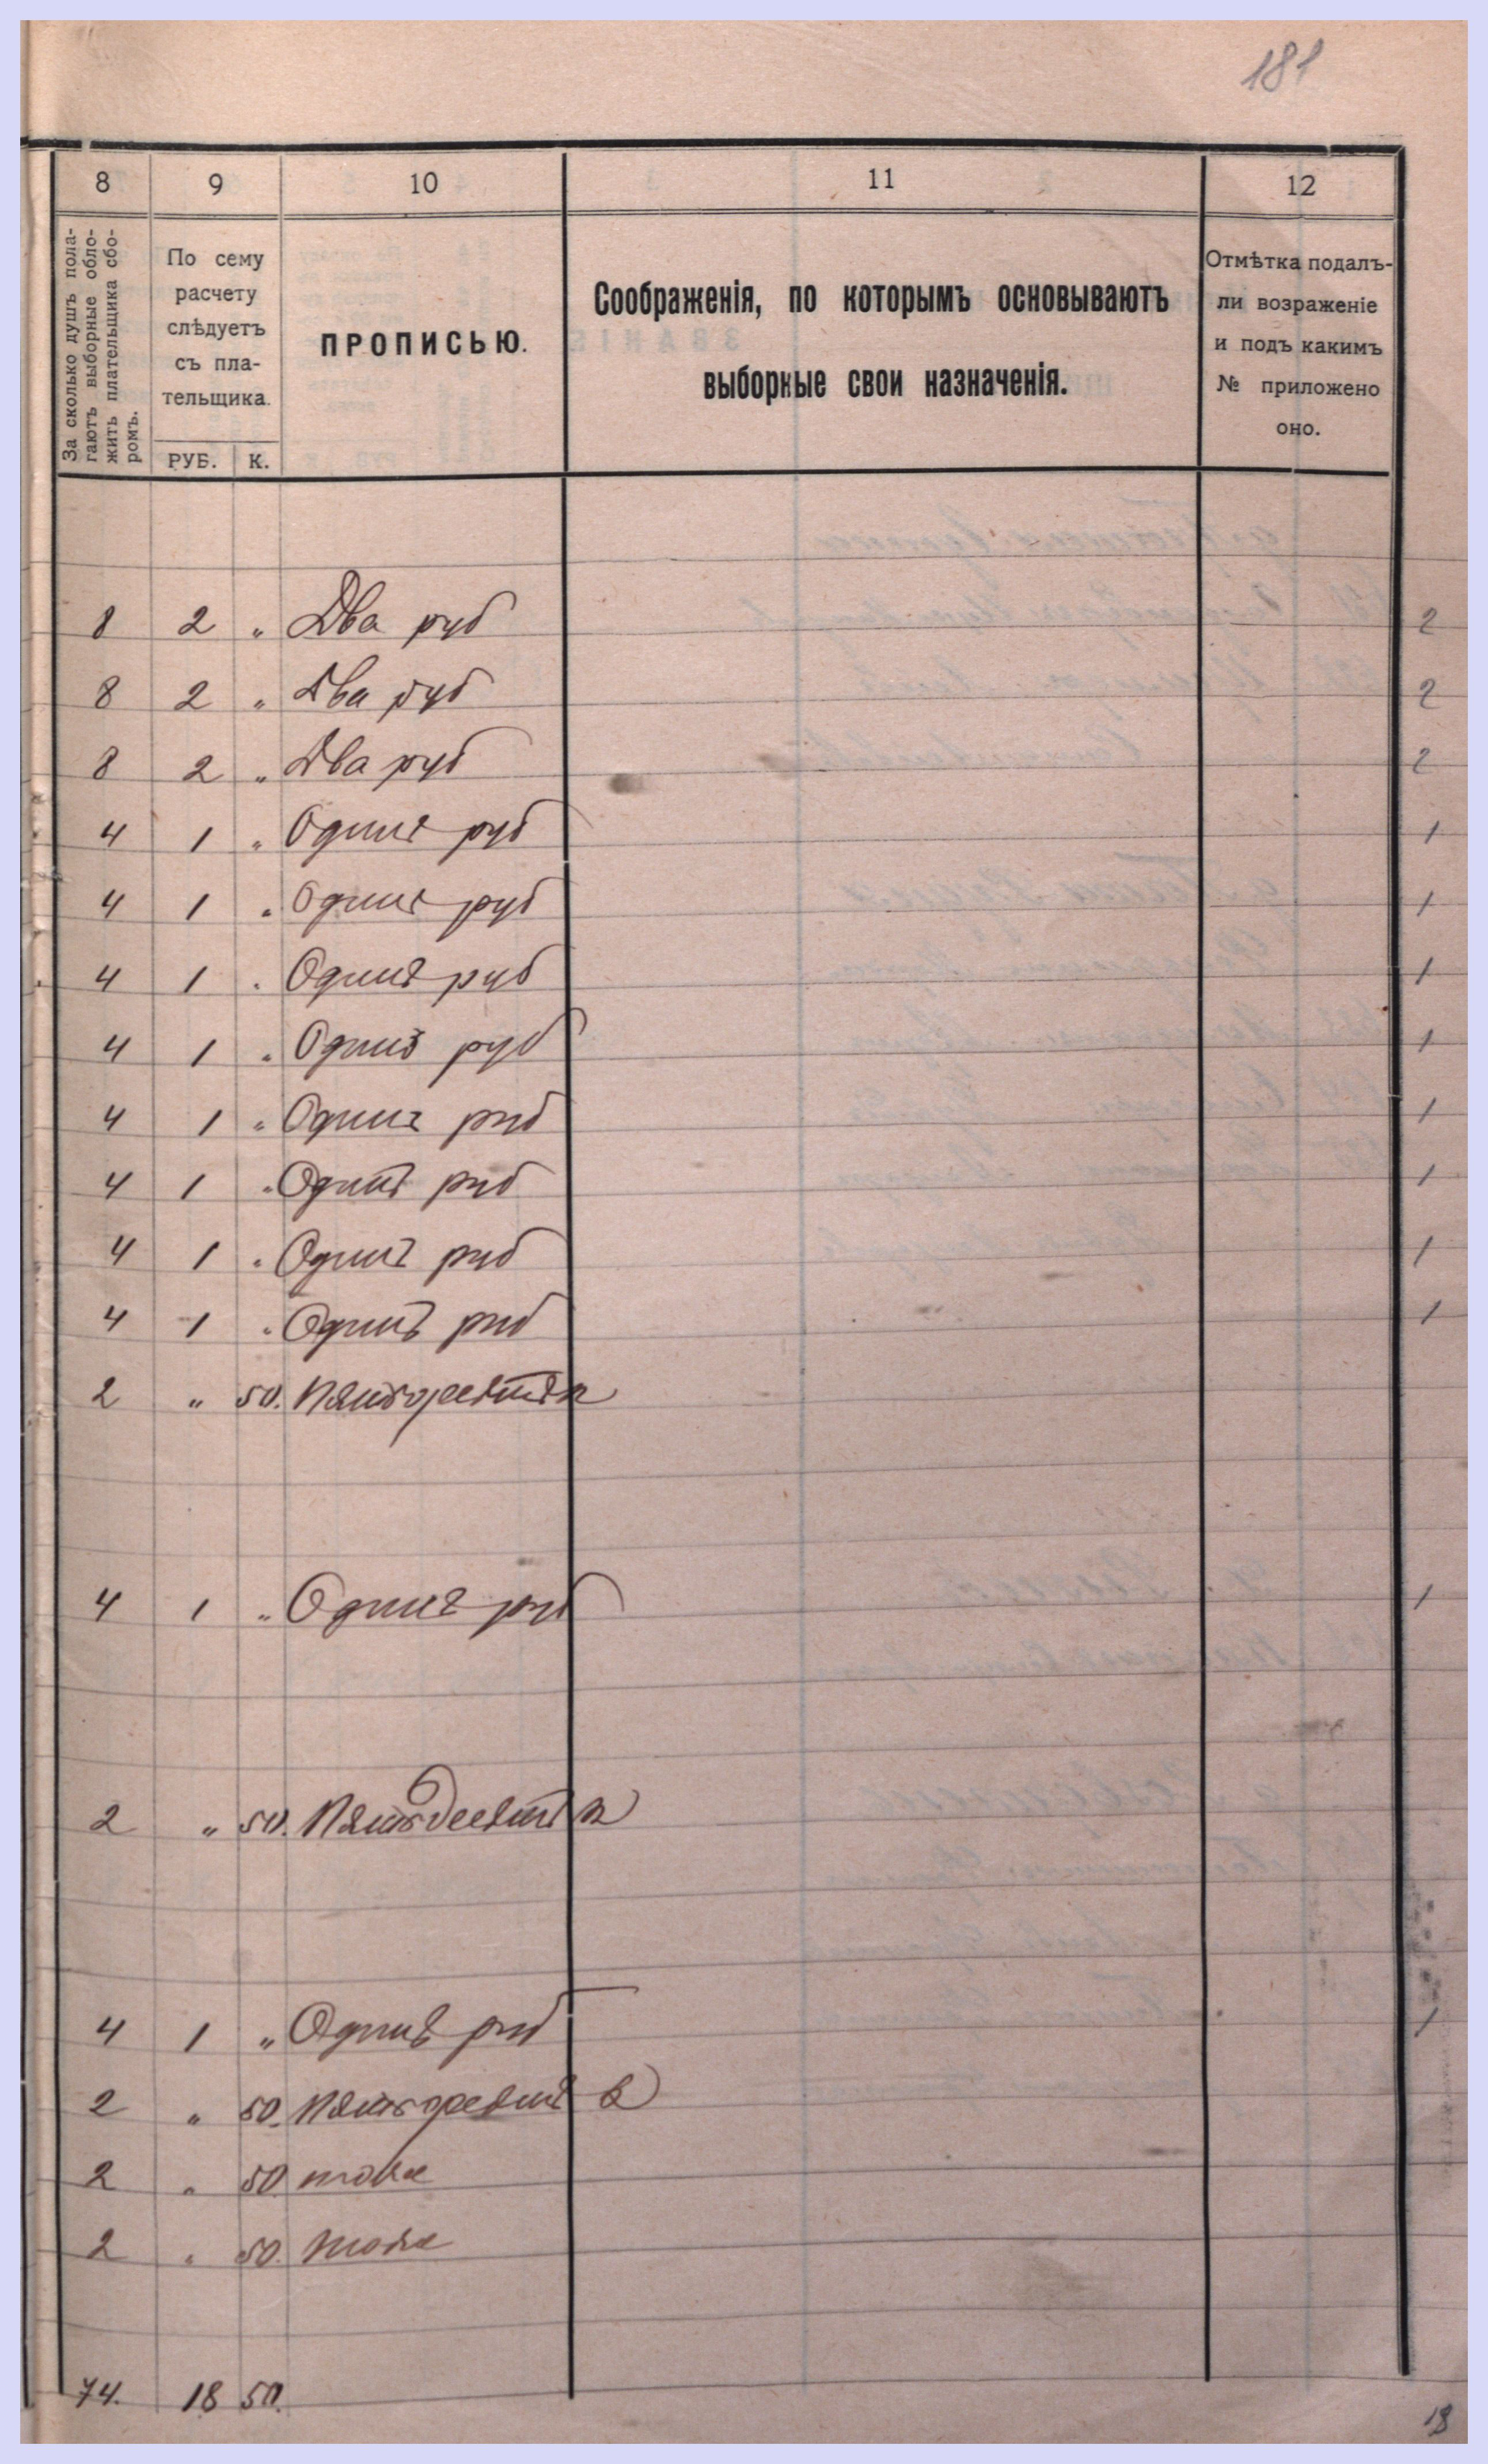 181
8 9 10 11 12
За сколько душъ пола-
гаютъ выборные обло-
жить плательщика сбо-
ромъ.
По сему
расчету
слѣдуетъ
съ пла-
тельщика.
РУБ. К.
ПРОПИСЬЮ.
Соображенія, по которымъ основываютъ
выборные свои назначенія.
Отмѣтка подалъ-
ли возраженіе
и подъ какимъ
№ приложено
оно.
8 2 " Два руб 2
8 2 " Два руб 2
8 2 " Два руб 2
4 1 " Одинъ руб 1
4 1 " Одинъ руб 1
4 1 " Одинъ руб 1
4 1 " Одинъ руб 1
4 1 " Одинъ руб 1
4 1 " Одинъ руб 1
4 1 " Одинъ руб 1
4 1 " Одинъ руб 1
2 " 50. Пятьдесятъ к
4 1 " Одинъ руб 1
2 " 50. Пятьдесятъ к
4 1 " Одинъ руб 1
2 " 50. Пятьдесятъ к
2 " 50 тоже
2 " 50. тоже
74. 18 50.
18